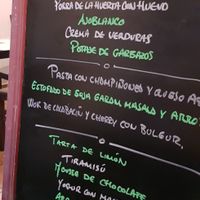 PORRA DE LA HUERTA CON HUEVO
AJOBLANCO
CREMA DE VERDURAS
POTAJE DE GARBAZOS
PASTA CON CHAMPIÑONES Y QUESO
ESTOFADO DE SOJA GARAM MASALA Y ARRO
WOK DE CALABACÍN Y CHERRY CON BULGUR
TARTA DE LIMÓN
TIRAMISÚ
MOUSE DE CHOCOLATE
YOGUR CON